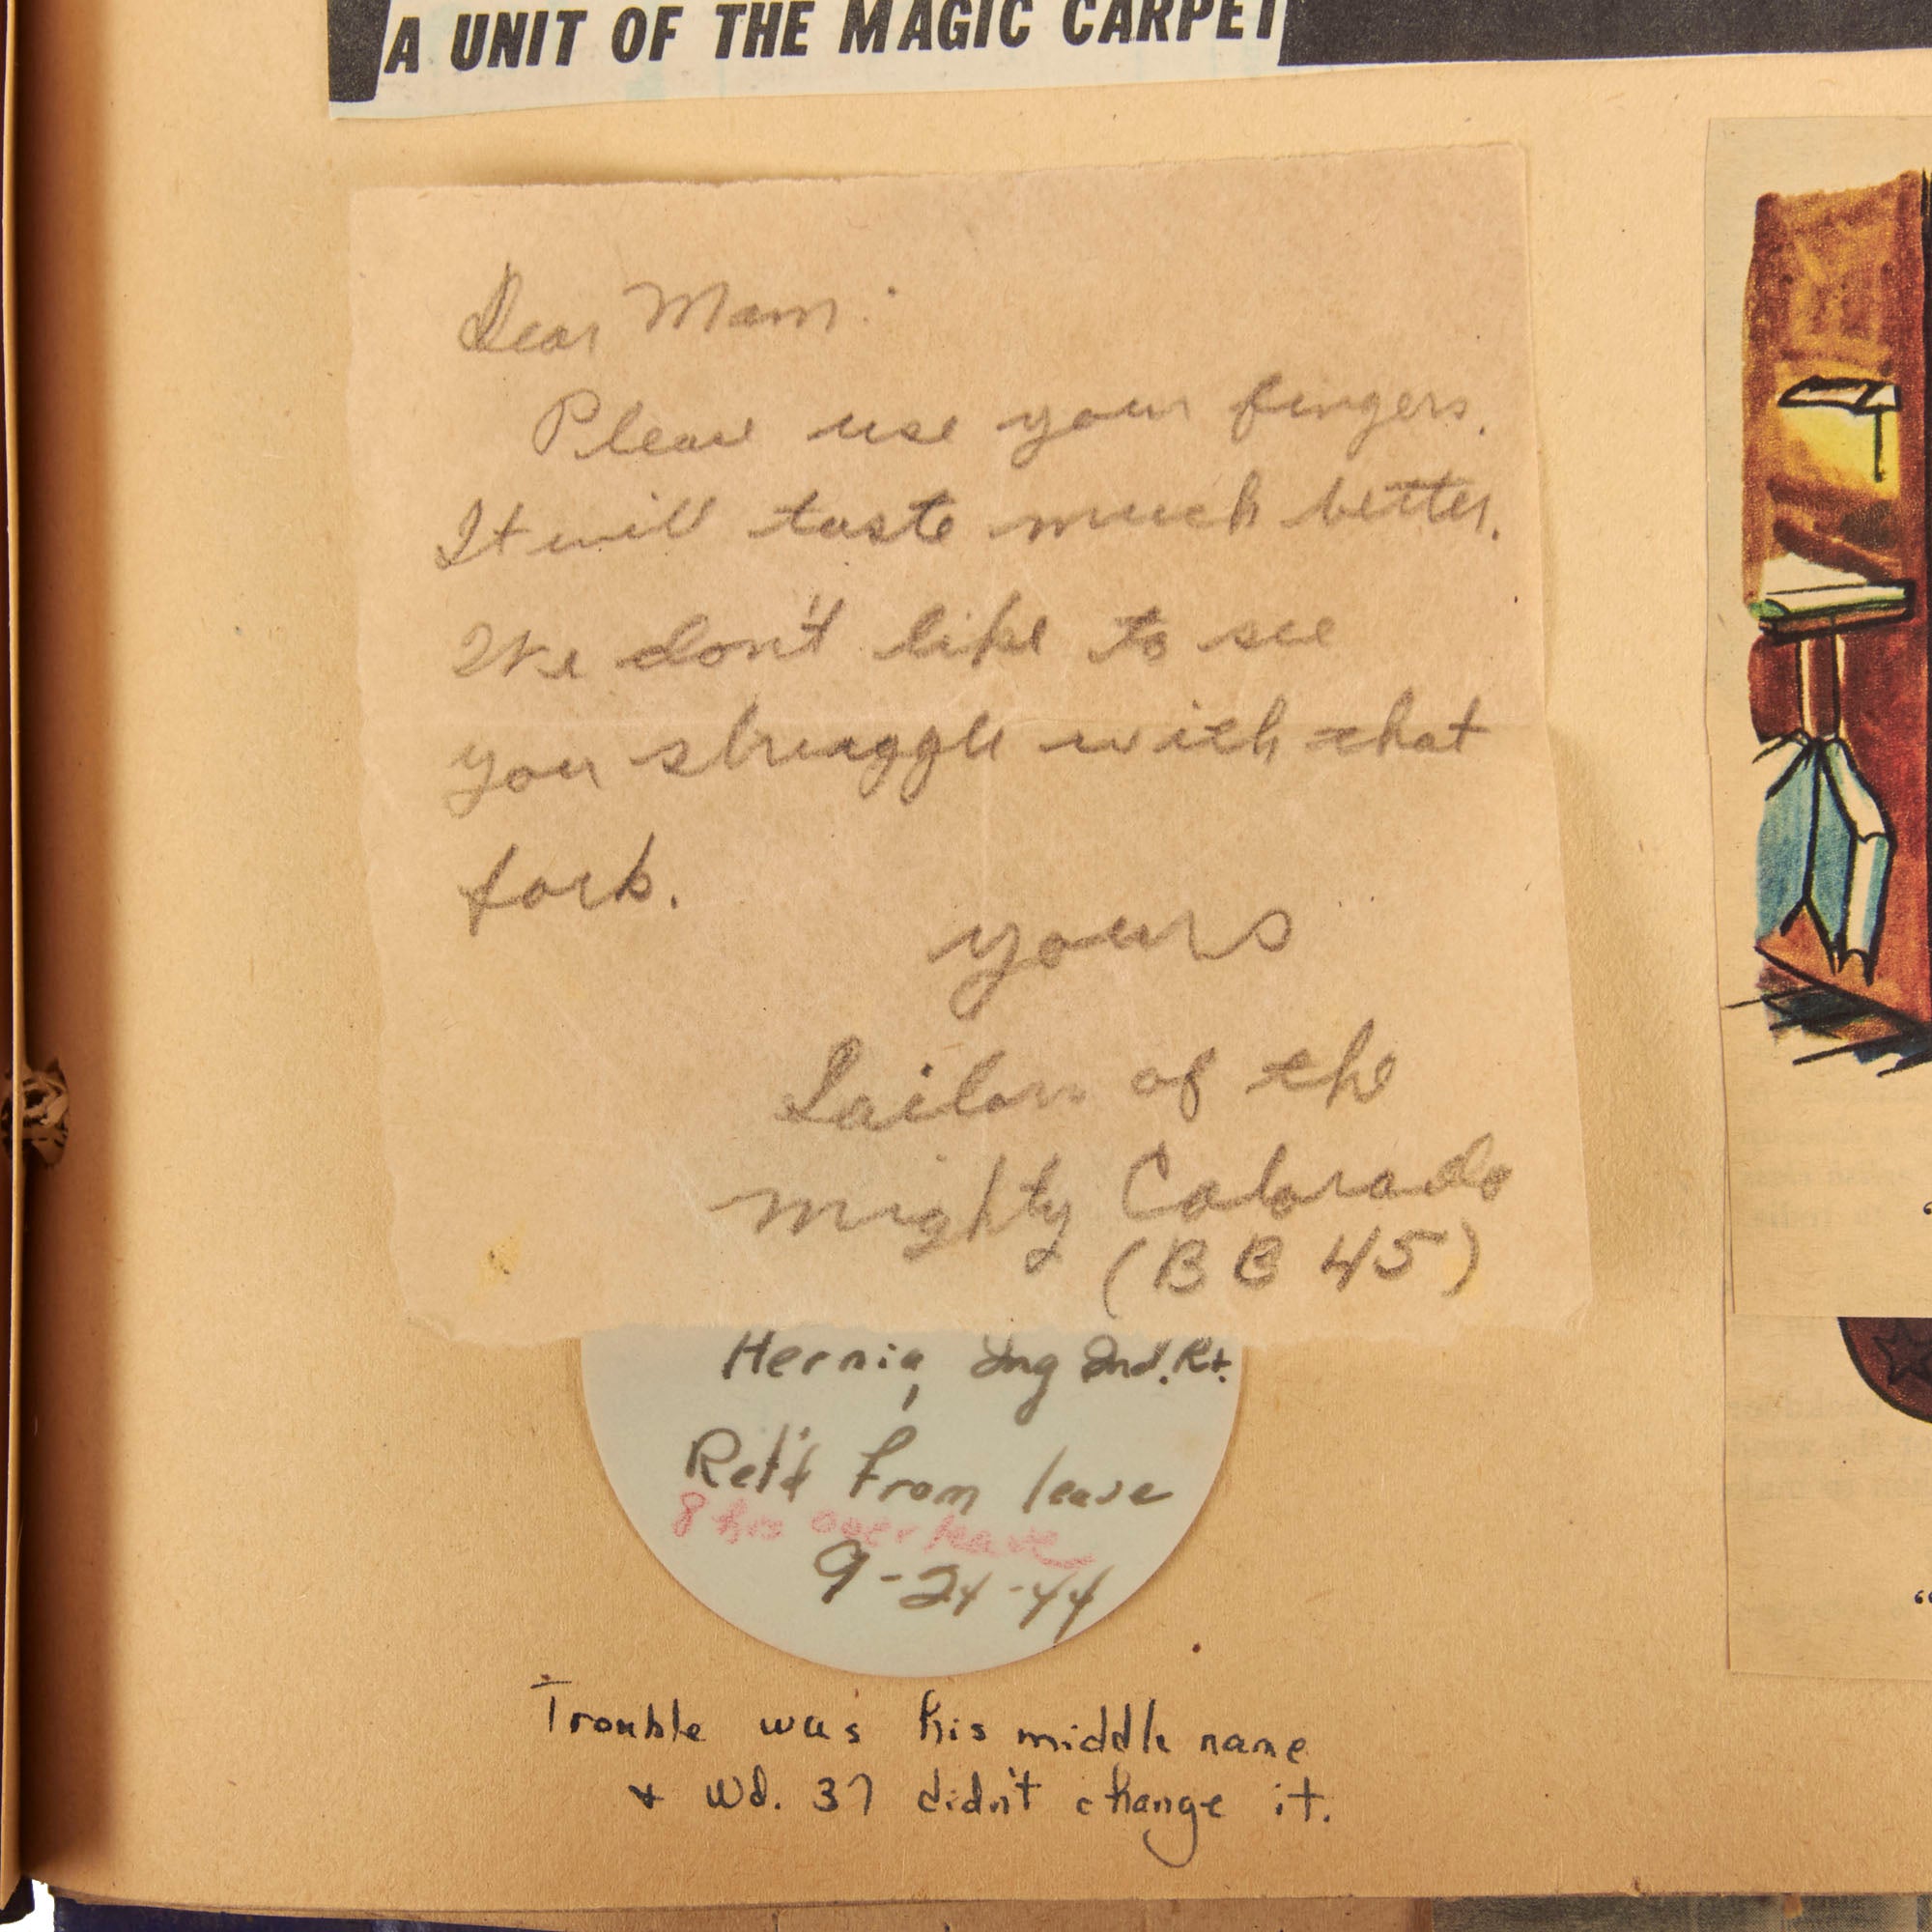 A UNIT OF THE MAGIC CARPET
Dear Mam:
Please use your fingers.
It will taste much better.
We don't like to see
you struggle with that
fork.
yours
Sailors of the
mighty Colorado
(BB 45)
Hernia, Ing Ind. Rt.
Ret'd From leave
8 hrs over leave
9-24-44
Trouble was his middle name
& Wd. 37 didn't change it.